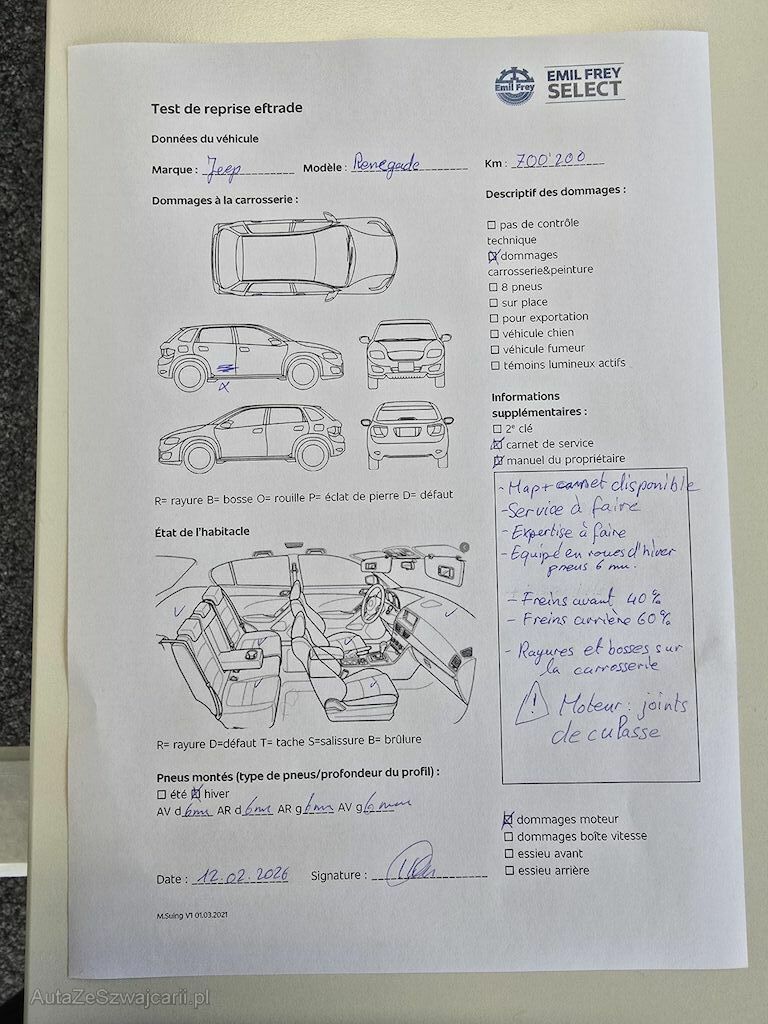 Emil Frey
EMIL FREY
SELECT
Test de reprise eftrade
Données du véhicule
Marque : Jeep Modèle : Renegade Km : 700'200
Dommages à la carrosserie :
Descriptif des dommages :
pas de contrôle
technique
dommages
carrosserie&peinture
8 pneus
sur place
pour exportation
véhicule chien
véhicule fumeur
témoins lumineux actifs
Informations
supplémentaires :
2e clé
carnet de service
manuel du propriétaire
R= rayure B= bosse O= rouille P= éclat de pierre D= défaut
État de l'habitacle
- Map + carnet disponible
- Service à faire
- Expertise à faire
- Equipé en roues d'hiver
pneus 6 mm.
- Freins avant 40%
- Freins arrière 60%
- Rayures et bosses sur
la carrosserie
! Moteur : joints
de culasse
R= rayure D=défaut T= tache S=salissure B= brûlure
Pneus montés (type de pneus/profondeur du profil) :
été hiver
AV d 6mm AR d 6mm AR g 6mm AV g 6mm
dommages moteur
dommages boîte vitesse
essieu avant
essieu arrière
Date : 12.02.2026 Signature :
M.Suing V1 01.03.2021
AutaZeSzwajcarii.pl